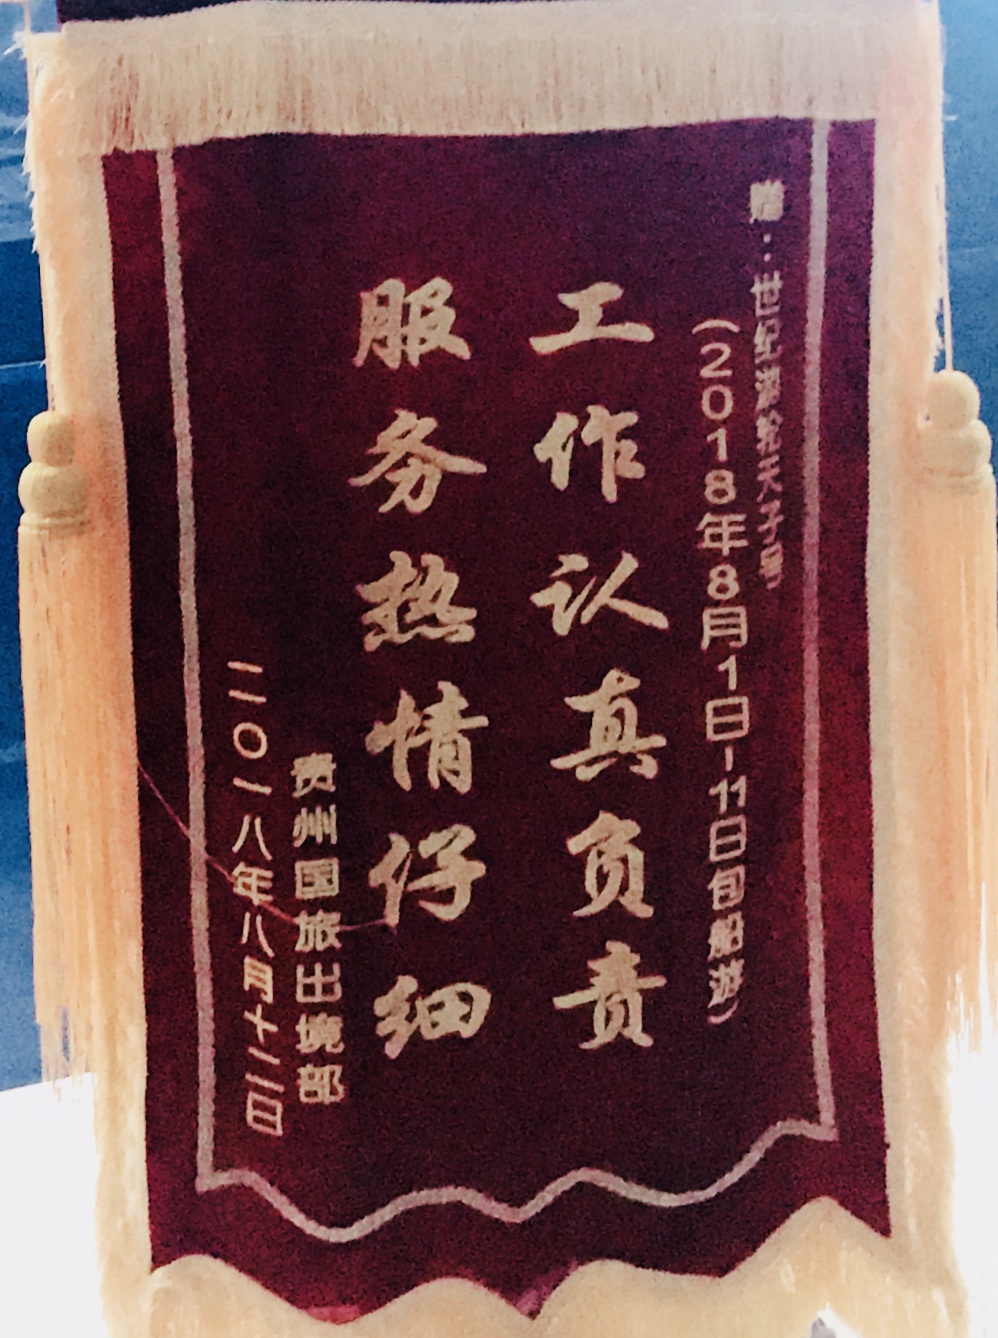 赠：世纪 天子号
（2018年8月1日-11日包船游）
工作认真负责
服务热情仔细
贵州国旅出境部
二〇一八年八月十三日